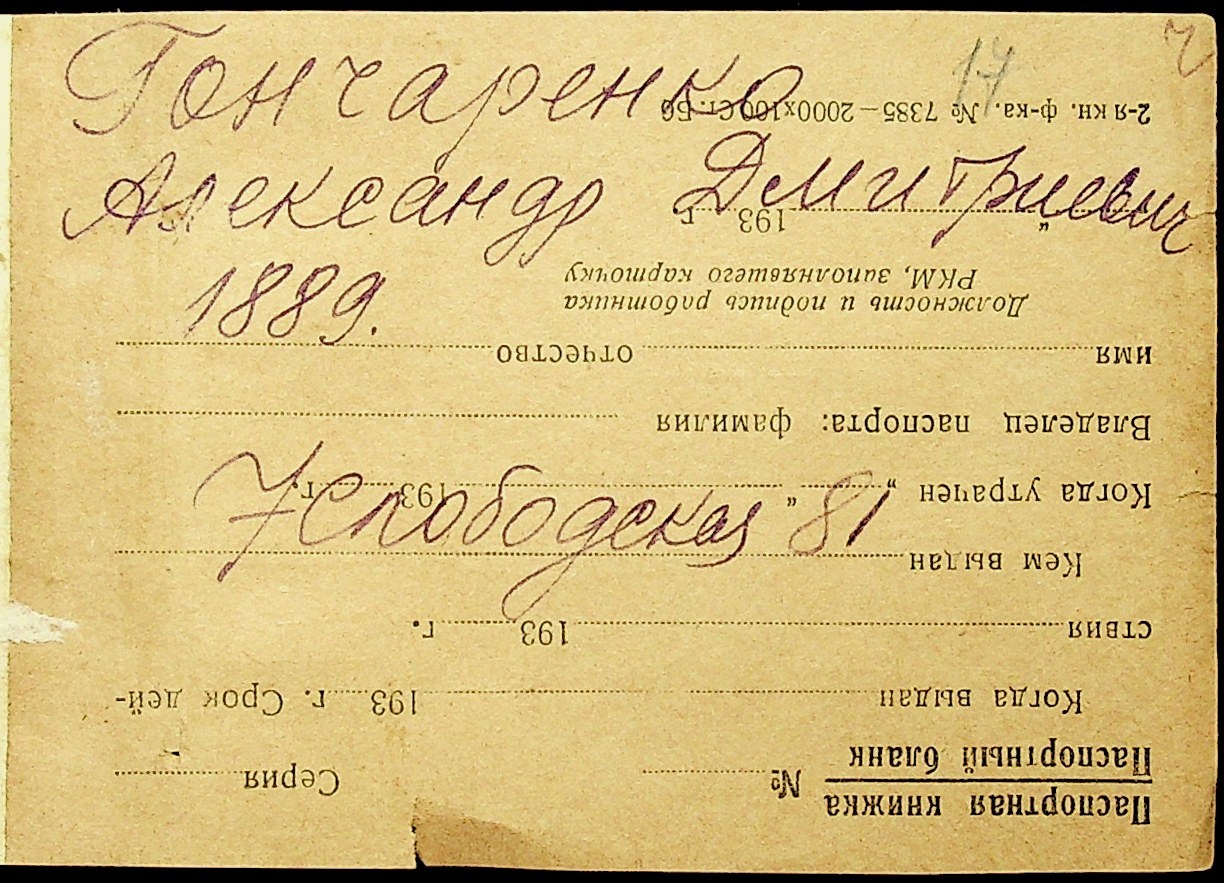 Гончаренко
Александр Дмитриевич
1889.
7 Слободская 81
17
Паспортная книжка
Паспортный бланк
№ Серия
Когда выдан 193 г. Срок дей-
ствия 193 г.
Кем выдан
Когда утрачен „ “ 193 г.
Владелец паспорта: фамилия
имя отчество
Должность и подпись работника
РКМ, заполнявшего карточку
„ 193 г.
2-я кн. ф-ка. № 7385—2000х100 Ст. Бб